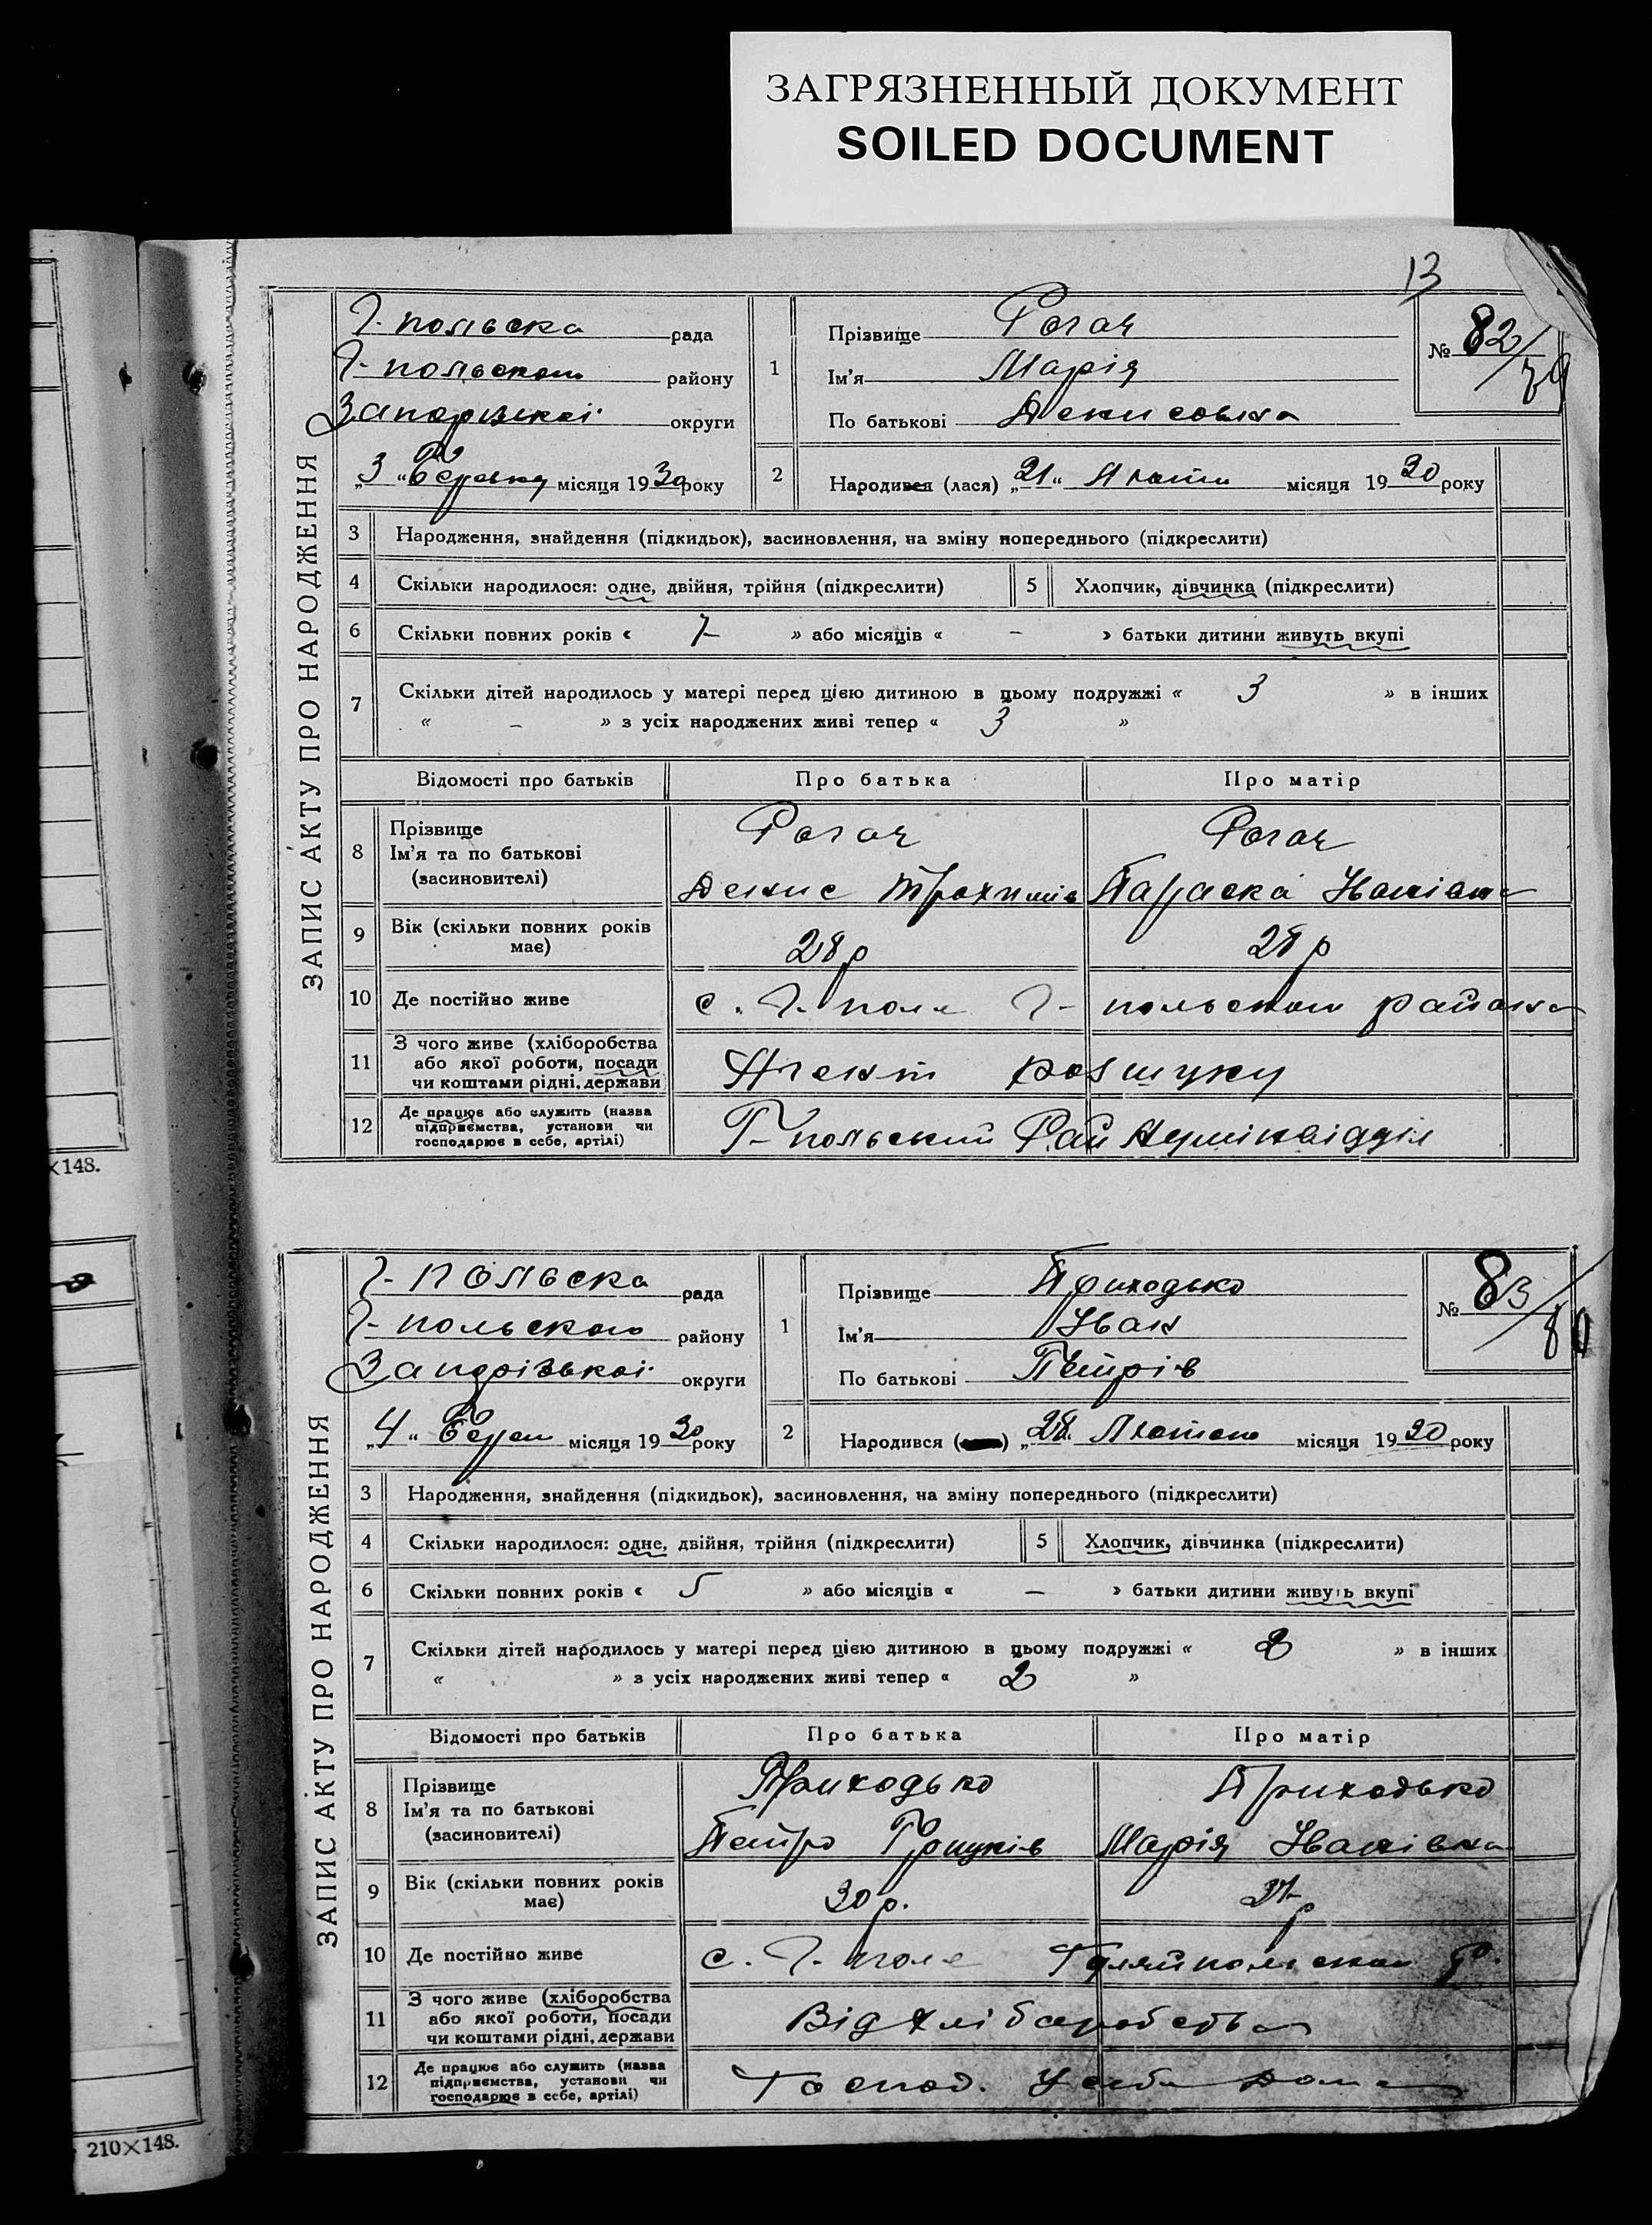 ЗАГРЯЗНЕННЫЙ ДОКУМЕНТ
SOILED DOCUMENT
13
ЗАПИС АКТУ ПРО НАРОДЖЕННЯ
Г-польська рада
Г-польського району
Запорізької округи
„3“ березня місяця 1930 року
1
Прізвище Рогач
Ім’я Марія
По батькові Денисовна
№ 82/79
2 Народився (лася) „21“ Лютня місяця 1930 року
3 Народження, знайдення (підкидьок), засиновлення, на зміну попереднього (підкреслити)
4 Скільки народилося: одне, двійня, трійня (підкреслити) 5 Хлопчик, дівчинка (підкреслити)
6 Скільки повних років « 7 » або місяців « – » батьки дитини живуть вкупі
7 Скільки дітей народилось у матері перед цією дитиною в цьому подружжі « 3 » в інших
« – » з усіх народжених живі тепер « 3 »
Відомості про батьків Про батька Про матір
8 Прізвище Рогач Рогач
Ім’я та по батькові
(засиновителі) Денис Трохимів Параска Іванівна
9 Вік (скільки повних років має) 28 р 28 р
10 Де постійно живе с. Г. поле Г-польського района
11 З чого живе (хліборобства
або якої роботи, посади
чи коштами рідні, держави Агент розшуку
12 Де працює або служить (назва
підприємства, установи чи
господарює в себе, артілі) Г-польский Рай Адмінвідділ
×148.
ЗАПИС АКТУ ПРО НАРОДЖЕННЯ
Г-польска рада
Г-польского району
Запорізької округи
„4“ Берез місяця 1930 року
1
Прізвище Приходько
Ім’я Іван
По батькові Петрів
№ 83/80
2 Народився „28“ Лютого місяця 1930 року
3 Народження, знайдення (підкидьок), засиновлення, на зміну попереднього (підкреслити)
4 Скільки народилося: одне, двійня, трійня (підкреслити) 5 Хлопчик, дівчинка (підкреслити)
6 Скільки повних років « 5 » або місяців « – » батьки дитини живуть вкупі
7 Скільки дітей народилось у матері перед цією дитиною в цьому подружжі « 2 » в інших
« » з усіх народжених живі тепер « 2 »
Відомості про батьків Про батька Про матір
8 Прізвище Приходько Приходько
Ім’я та по батькові
(засиновителі) Петро Грицків Марія Іванівна
9 Вік (скільки повних років має) 30 р. 27 р
10 Де постійно живе с. Г. поле Гуляйпольского р.
11 З чого живе (хліборобства
або якої роботи, посади
чи коштами рідні, держави Від хліборобства
12 Де працює або служить (назва
підприємства, установи чи
господарює в себе, артілі) Господ. У себе дома
210×148.